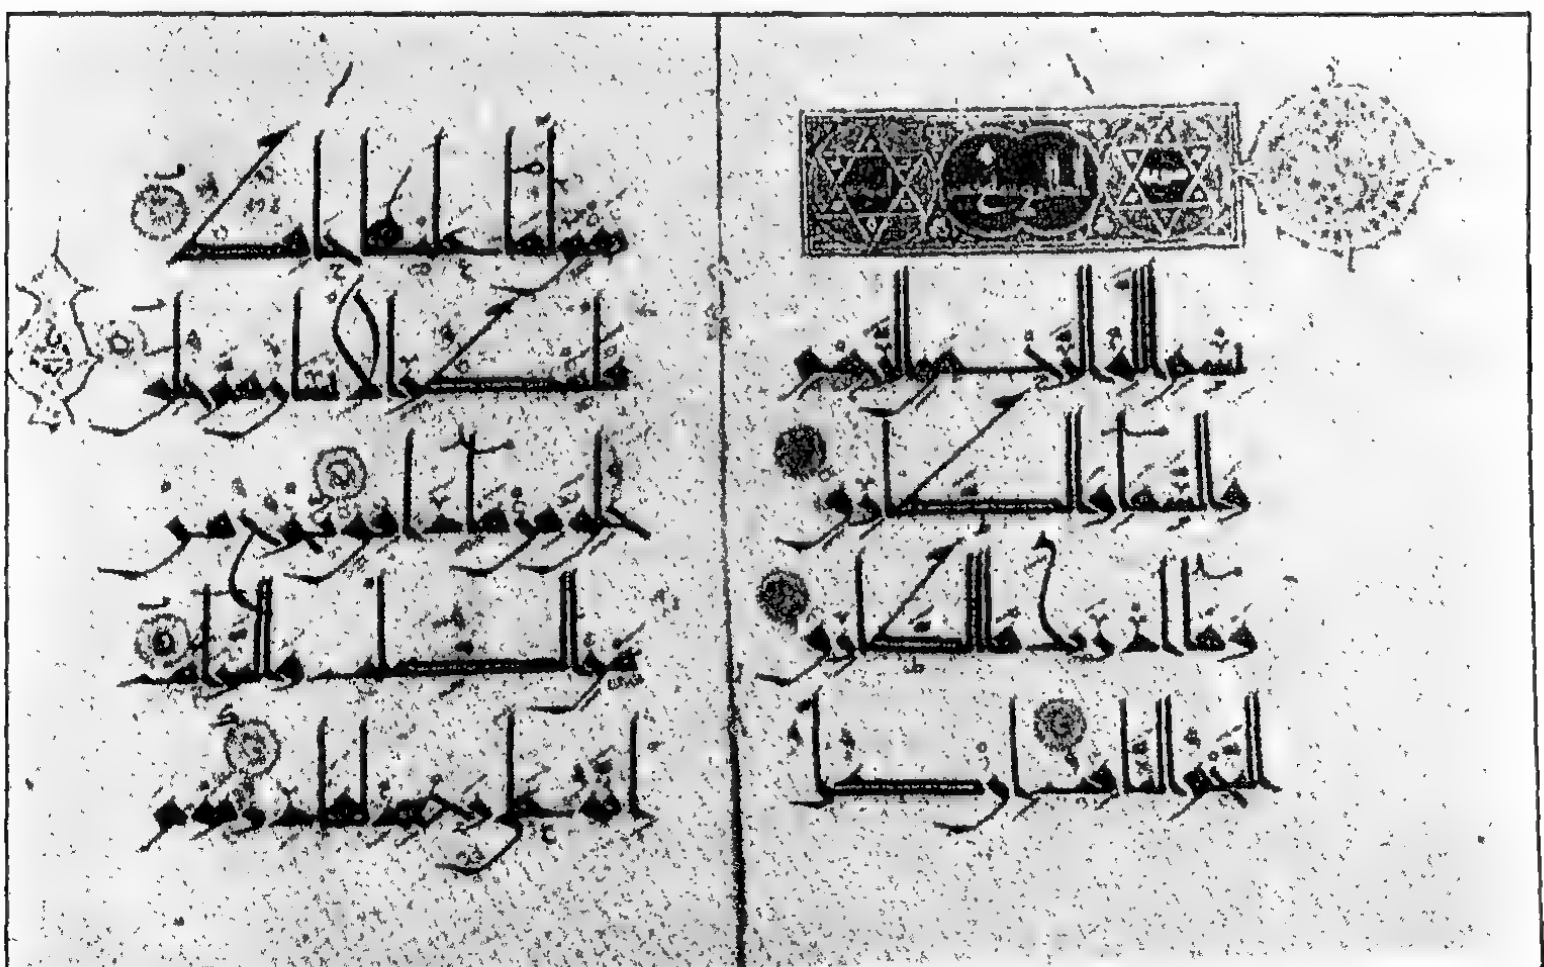 بسم الله الرحمن الرحيم
والسما والطارق
وما ادريك ما الطارق
النجم الثاقب ان كل
نفس لما عليها حافظ
فلينظر الانسن مم خلق
خلق من ما دافق يخرج من
بين الصلب والترائب
انه على رجعه لقادر يوم